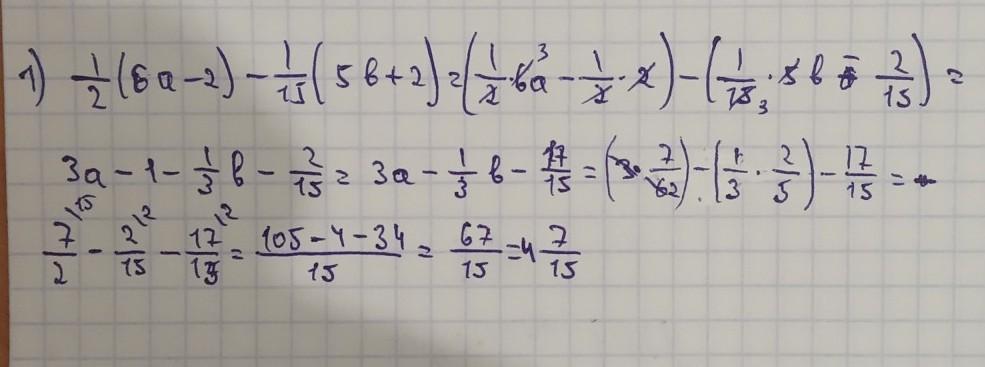 1) 1/2 (6a - 2) - 1/15 (5b + 2) = (1/2 · 6a ³ - 1/2 · 2) - (1/15 ₃ · 5b - 2/15) =
3a - 1 - 1/3 b - 2/15 = 3a - 1/3 b - 17/15 = (3 · 7/62) - (1/3 · 2/5) - 17/15 =
7/2 \15 - 2/15 \2 - 17/15 \2 = (105 - 4 - 34)/15 = 67/15 = 4 7/15